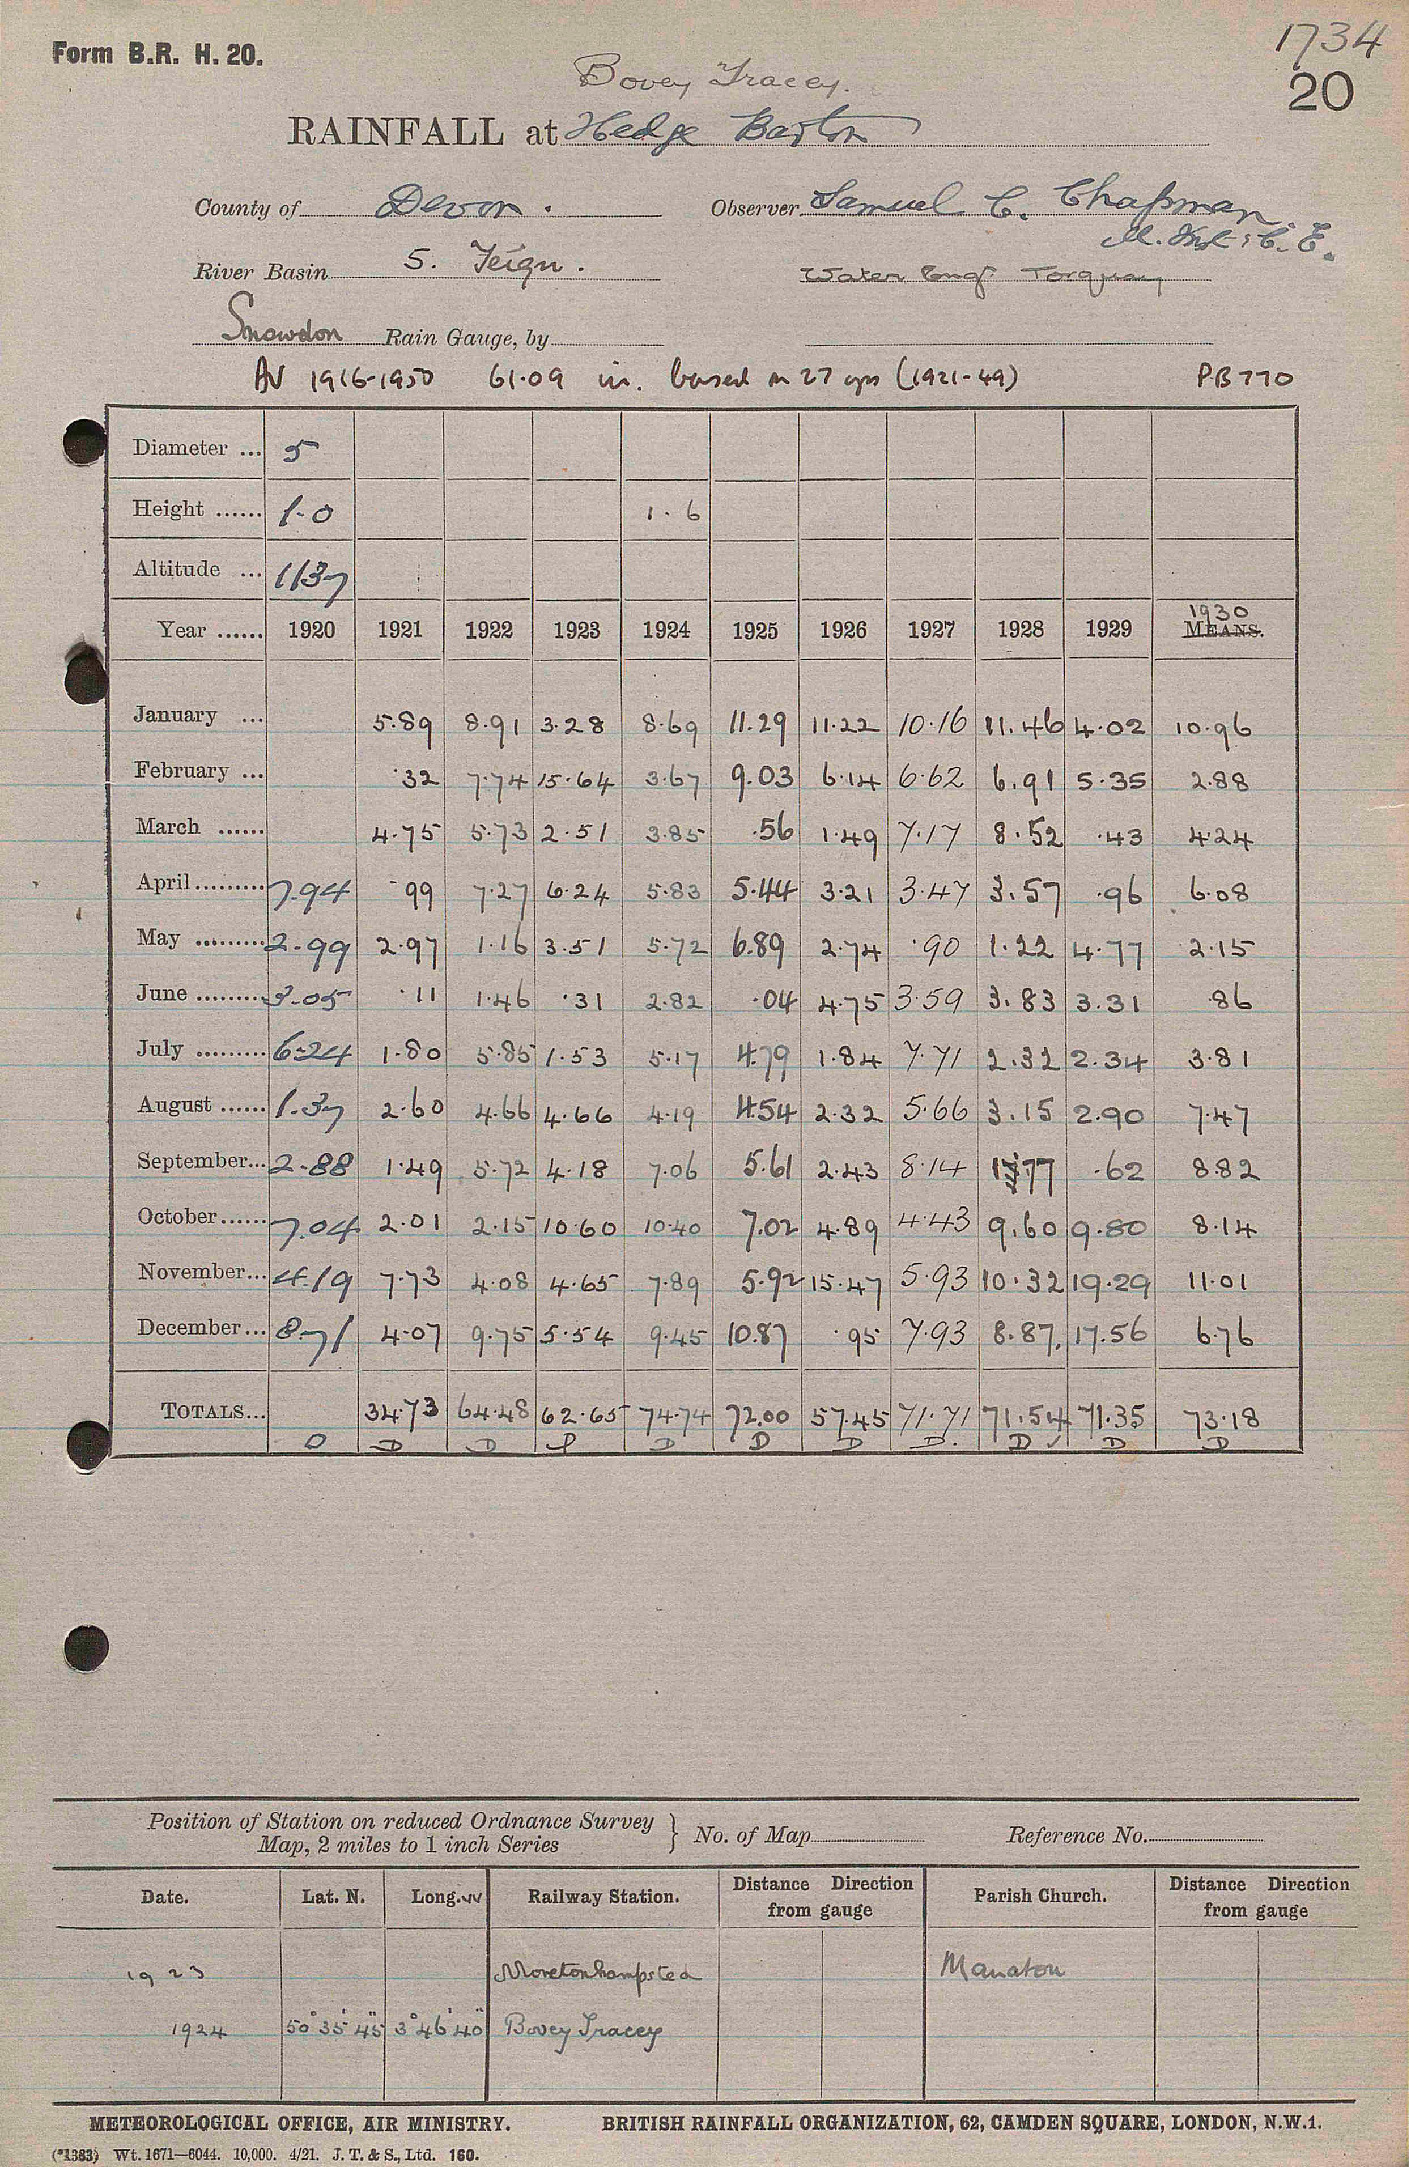 1734
Form B.R. H. 20.
20
Bovey Tracey.
RAINFALL at Hedge Barton
County of Devon. Observer Samuel C. Chapman
M. Inst. C. E.
River Basin 5. Teign. Water Engr Torquay
Snowdon Rain Gauge, by
AV 1916-1950 61.09 in. based on 27 yrs (1921-49) PB770
Diameter ... 5
Height ...... 1-0 1.6
Altitude ... 1137
Year ...... 1920 1921 1922 1923 1924 1925 1926 1927 1928 1929 1930 MEANS.
January ... 5.89 8.91 3.28 8.69 11.29 11.22 10.16 11.46 4.02 10.96
February ... .32 7.74 15.64 3.67 9.03 6.14 6.62 6.91 5.35 2.88
March ...... 4.75 5.73 2.51 3.85 .56 1.49 7.17 8.52 .43 4.24
April ......... 7.94 .99 7.27 6.24 5.83 5.44 3.21 3.47 3.57 .96 6.08
May ......... 2.99 2.97 1.16 3.51 5.72 6.89 2.74 .90 1.22 4.77 2.15
June ......... 3.05 .11 1.46 .31 2.82 .04 4.75 3.59 3.83 3.31 .86
July ......... 6.24 1.80 5.85 1.53 5.17 4.79 1.84 7.71 2.32 2.34 3.81
August ...... 1.37 2.60 4.66 4.66 4.19 4.54 2.32 5.66 3.15 2.90 7.47
September... 2.88 1.49 5.72 4.18 7.06 5.61 2.43 8.14 1.77 .62 8.82
October...... 7.04 2.01 2.15 10.60 10.40 7.02 4.89 4.43 9.60 9.80 8.14
November... 4.19 7.73 4.08 4.65 7.89 5.92 15.47 5.93 10.32 19.29 11.01
December... 8.71 4.07 9.75 5.54 9.45 10.87 .95 7.93 8.87 17.56 6.76
TOTALS... 34.73 64.48 62.65 74.74 72.00 57.45 71.71 71.54 71.35 73.18
O D D P D D D D. D ✓ D D
Position of Station on reduced Ordnance Survey
Map, 2 miles to 1 inch Series } No. of Map Reference No.
Date. Lat. N. Long. W Railway Station. Distance Direction from gauge Parish Church. Distance Direction from gauge
1923 Moretonhampstead Manaton
1924 50° 35' 45" 3° 46' 40" Bovey Tracey
METEOROLOGICAL OFFICE, AIR MINISTRY. BRITISH RAINFALL ORGANIZATION, 62, CAMDEN SQUARE, LONDON, N.W.1.
(*1383) Wt. 1671—6044. 10,000. 4/21. J. T. & S., Ltd. 160.